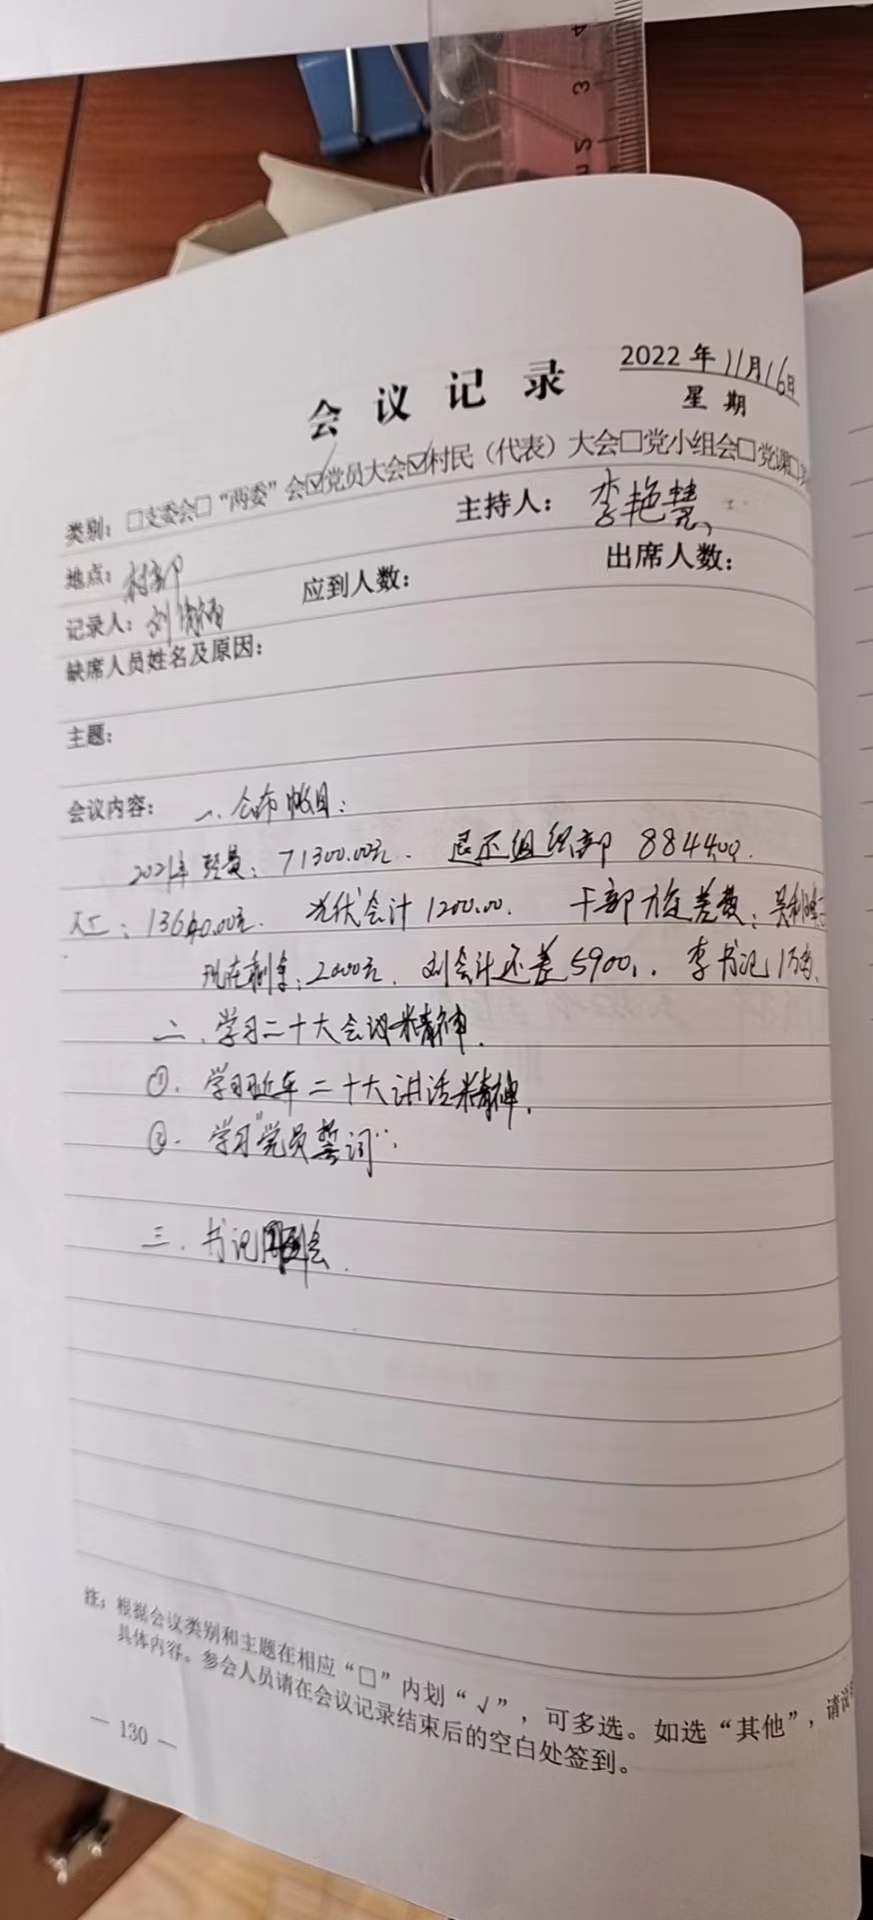 2022年11月16日
会议记录 星期
类别：□支委会□“两委”会☑党员大会☑村民（代表）大会□党小组会□党课□
地点：村部 主持人：李艳慧
记录人：刘 应到人数： 出席人数：
缺席人员姓名及原因：
主题：
会议内容：一、公布帐目：
2021年经费：71300.00元. 退还组织部 884400.
人工：13640.00元. 光伏会计1200.00. 干部 差费：吴利
现在剩余：2000元. 刘会计还差5900. 李书记1万
二、学习二十大会议精神.
①. 学习习近平二十大讲话精神.
②. 学习“党员誓词”.
三. 书记 会.
注：根据会议类别和主题在相应“□”内划“√”，可多选。如选“其他”，请
具体内容。参会人员请在会议记录结束后的空白处签到。
— 130 —